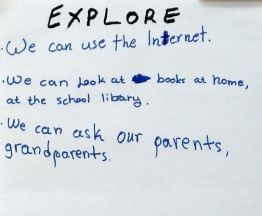 EXPLORE
·We can use the Internet.
·We can look at books at home,
at the school library.
·We can ask our parents,
grandparents.